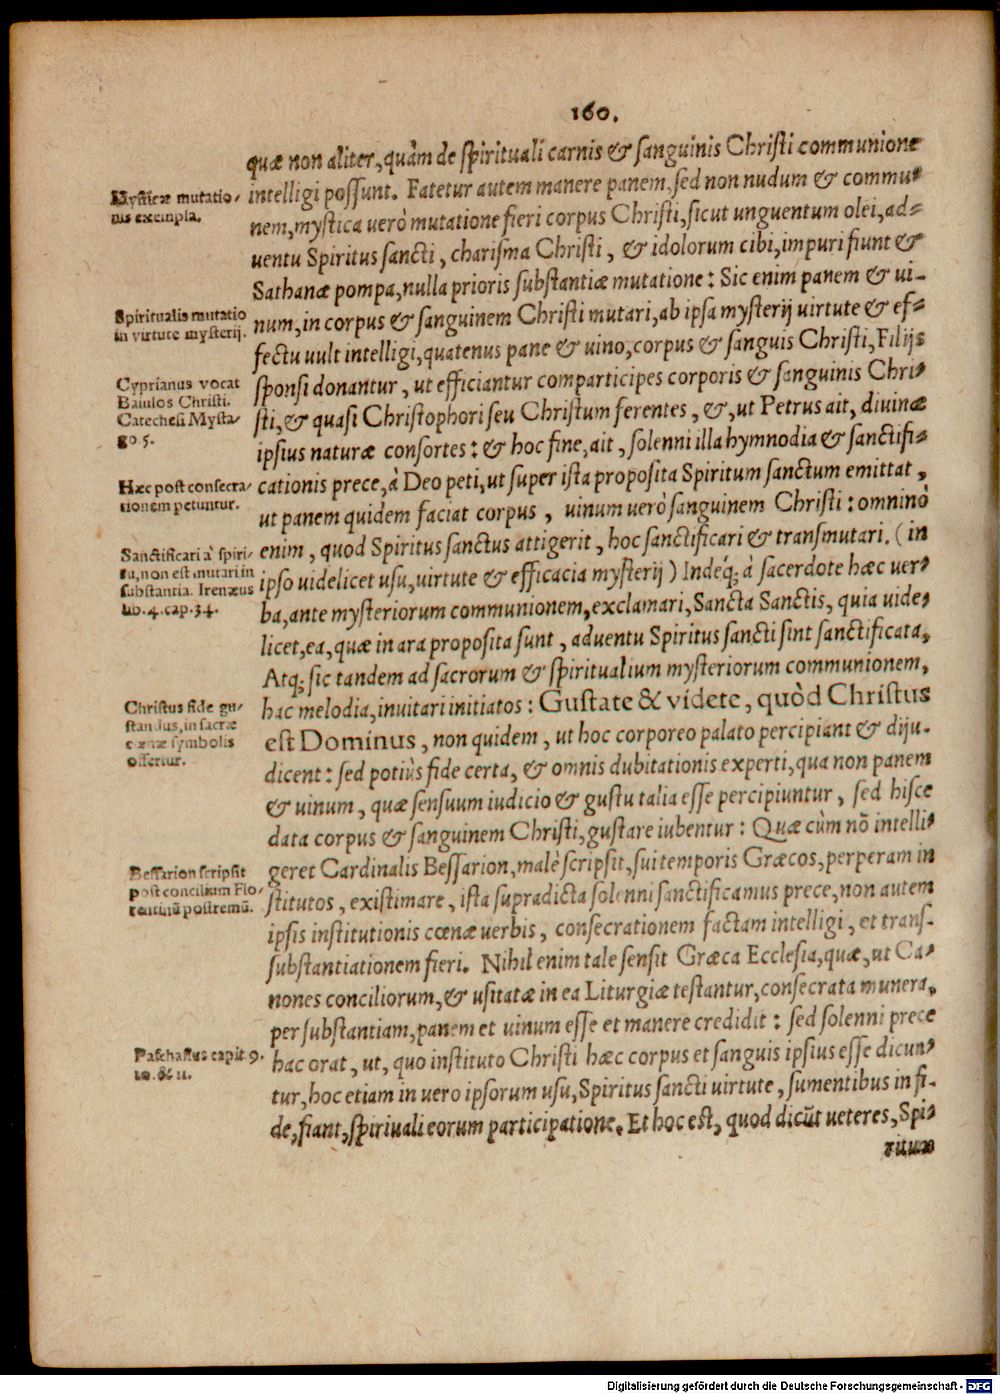 160.
quæ non aliter, quàm de spirituali carnis & sanguinis Christi communione
intelligi possunt. Fatetur autem manere panem, sed non nudum & commu-
nem, mystica uerò mutatione fieri corpus Christi, sicut unguentum olei, ad-
uentu Spiritus sancti, charisma Christi, & idolorum cibi, impuri fiunt &
Sathanæ pompa, nulla prioris substantiæ mutatione: Sic enim panem & ui-
num, in corpus & sanguinem Christi mutari, ab ipsa mysterij uirtute & ef-
fectu uult intelligi, quatenus pane & uino, corpus & sanguis Christi, Filijs
sponsi donantur, ut efficiantur comparticipes corporis & sanguinis Chri-
sti, & quasi Christophori seu Christum ferentes, &, ut Petrus ait, diuinæ
ipsius naturæ consortes: & hoc fine, ait, solenni illa hymnodia & sanctifi-
cationis prece, à Deo peti, ut super ista proposita Spiritum sanctum emittat,
ut panem quidem faciat corpus, uinum uerò sanguinem Christi: omninò
enim, quod Spiritus sanctus attigerit, hoc sanctificari & transmutari. (in
ipso uidelicet usu, uirtute & efficacia mysterij) Indeq́; à sacerdote hæc uer-
ba, ante mysteriorum communionem, exclamari, Sancta Sanctis, quia uide-
licet, ea, quæ in ara proposita sunt, aduentu Spiritus sancti sint sanctificata,
Atq; sic tandem ad sacrorum & spiritualium mysteriorum communionem,
hac melodia, inuitari initiatos: Gustate & videte, quòd Christus
est Dominus, non quidem, ut hoc corporeo palato percipiant & diju-
dicent: sed potiùs fide certa, & omnis dubitationis experti, qua non panem
& uinum, quæ sensuum iudicio & gustu talia esse percipiuntur, sed hisce
data corpus & sanguinem Christi, gustare iubentur: Quæ cùm nō intelli-
geret Cardinalis Bessarion, malè scripsit, sui temporis Græcos, perperam in
stitutos, existimare, ista supradicta solenni sanctificamus prece, non autem
ipsis institutionis cœnæ uerbis, consecrationem factam intelligi, et trans-
substantiationem fieri. Nihil enim tale sensit Græca Ecclesia, quæ, ut Ca-
nones conciliorum, & usitatæ in ea Liturgiæ testantur, consecrata munera,
per substantiam, panem et uinum esse et manere credidit: sed solenni prece
hac orat, ut, quo instituto Christi hæc corpus et sanguis ipsius esse dicun-
tur, hoc etiam in uero ipsorum usu, Spiritus sancti uirtute, sumentibus in fi-
de, fiant, spirituali eorum participatione. Et hoc est, quod dicūt ueteres, Spi-
ritum
Mysticæ mutatio-
nis exempla.
Spiritualis mutatio
in virtute mysterij.
Cyprianus vocat
Baiulos Christi.
Catechesi Mysta-
go 5.
Hæc post consecra-
tionem petuntur.
Sanctificari à spiri-
tu, non est mutari in
substantia. Irenæus
lib. 4. cap. 34.
Christus fide gu-
standus, in sacræ
cœnæ symbolis
offertur.
Bessarion scripsit
post concilium Flo-
rentinū postremū.
Paschasius capit 9.
10. & 11.
Digitalisierung gefördert durch die Deutsche Forschungsgemeinschaft - DFG